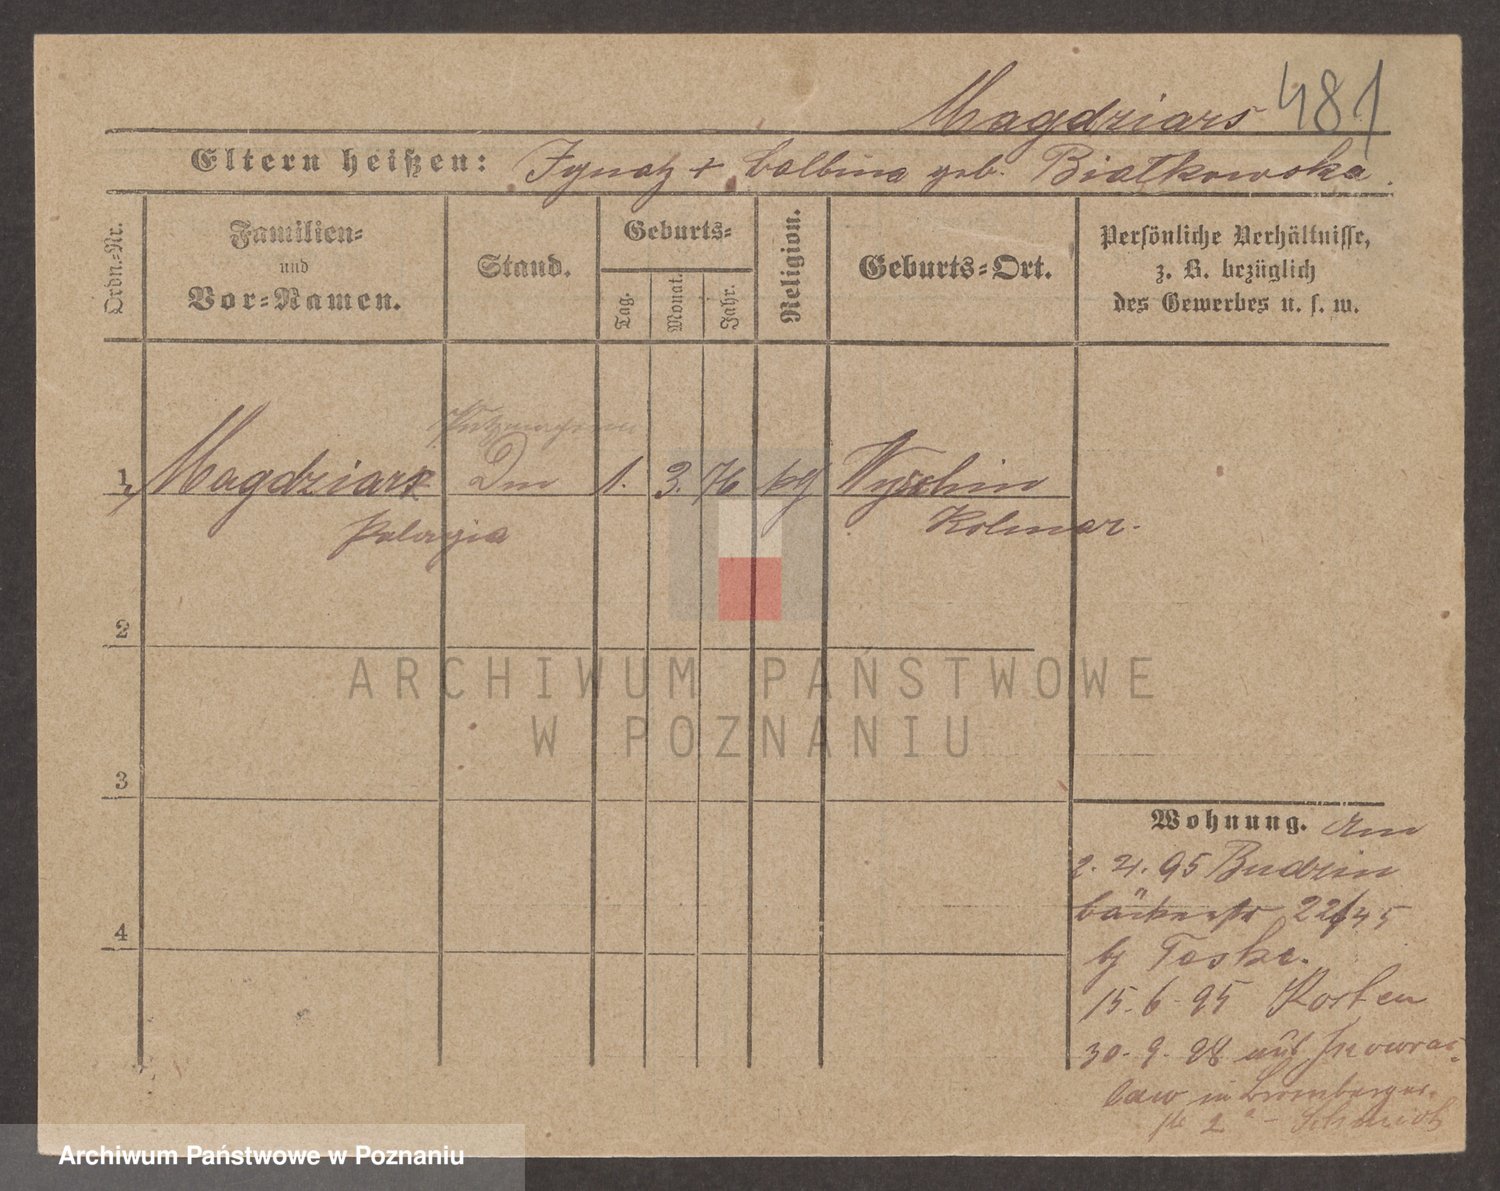 Magdziars 481
Eltern heißen: Ignatz + Balbina geb. Bialkowska.
Ordn.-Nr.
Familien-
und
Vor-Namen.
Stand.
Geburts-
Tag.
Monat.
Jahr.
Religion.
Geburts-Ort.
Persönliche Verhältnisse,
z. B. bezüglich
des Gewerbes u. s. w.
Putzmacherin
1 Magdziars Dm 1. 3. 76 kg Wyschin
Pelagia Kolmar.
2
3
4
ARCHIWUM PAŃSTWOWE
W POZNANIU
Wohnung. Am
2. 4. 95 Budzin
Bäckerstr 22/45
bj Teske.
15. 6. 95 Kosten
30. 9. 98 auf Inowraz-
law in Bromberger-
str 2 - Schmidt
Archiwum Państwowe w Poznaniu